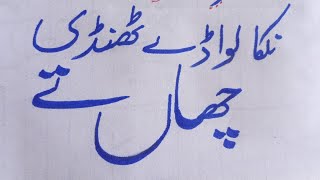 نکا لوا ڈے ٹھنڈی
چھاں تے